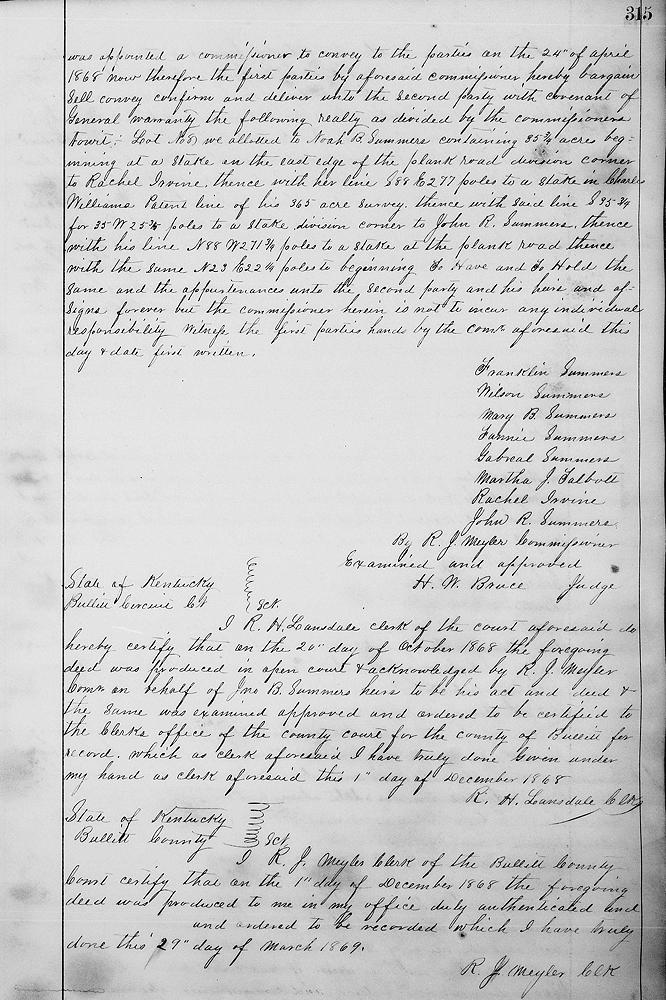 315
was appointed a commissioner to convey to the parties on the 24" of april
1868 now therefore the first parties by aforesaid commissioner hereby bargain
Sell convey confirm and deliver unto the Second party with covenant of
General warranty the following realty as divided by the commissioners
towit: Lot No 8 we allotted to Noah B. Summers containing 35 3/4 acres beg=
inning at a Stake on the east edge of the plank road division corner
to Rachel Irvine, thence with her line S 88 E 277 poles to a stake in Charles
Williams Patent line of his 365 acre Survey, thence with said line S 35 3/4
for 35 W 25 3/4 poles to a Stake division corner to John R. Summers, thence
with his line N 88 W 271 3/4 poles to a stake at the plank road thence
with the same N 23 E 22 1/4 poles to beginning To Have and To Hold the
Same and the appurtenances unto the Second party and his heirs and as=
Signs forever but the commissioner herein is not to incur any individual
responsibility Witness the first parties hands by the comr aforesaid this
day & date first written.
Franklin Summers
Wilson Summers
Mary B. Summers
Fannie Summers
Gabreal Summers
Martha J. Talbott
Rachel Irvine
John R. Summers
By R. J. Meyler Commissioner
Examined and approved
H. W. Bruce Judge
State of Kentucky
Bullitt Circuit Ct Sct.
I R. H. Lansdale clerk of the court aforesaid do
hereby certify that on the 20" day of October 1868 the foregoing
deed was produced in open court & acknowledged by R. J. Meyler
Comr on behalf of Jno B. Summers heirs to be his act and deed &
the same was examined approved and ordered to be certified to
the Clerks office of the county court for the county of Bullitt for
record. which as clerk aforesaid I have truly done Given under
my hand as clerk aforesaid this 1" day of December 1868
R. H. Lansdale Clk
State of Kentucky
Bullitt County Sct
I R. J. Meyler Clerk of the Bullitt County
Court certify that on the 1" day of December 1868 the foregoing
deed was produced to me in my office duly authenticated and
and ordered to be recorded which I have truly
done this 29" day of March 1869.
R. J Meyler Clk